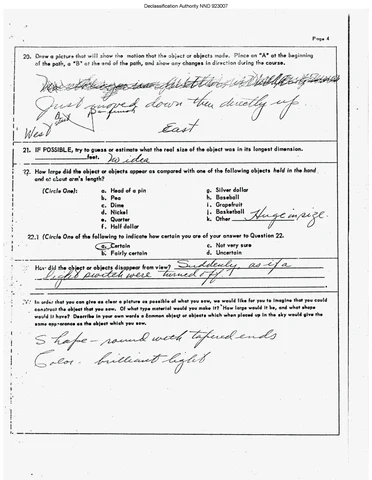 Declassification Authority NND 923007
Page 4
20. Draw a picture that will show the motion that the object or objects made. Place an "A" at the beginning
of the path, a "B" at the end of the path, and show any changes in direction during the course.
Just moved down then directly up.
West
East
21. IF POSSIBLE, try to guess or estimate what the real size of the object was in its longest dimension.
feet. No idea
22. How large did the object or objects appear as compared with one of the following objects held in the hand
and at about arm's length?
(Circle One): a. Head of a pin g. Silver dollar
b. Pea h. Baseball
c. Dime i. Grapefruit
d. Nickel j. Basketball
e. Quarter k. Other Huge in size.
f. Half dollar
22.1 (Circle One of the following to indicate how certain you are of your answer to Question 22.
a. Certain c. Not very sure
b. Fairly certain d. Uncertain
How did the object or objects disappear from view? Suddenly, as if a
light switch were turned off.
In order that you can give as clear a picture as possible of what you saw, we would like for you to imagine that you could
construct the object that you saw. Of what type material would you make it? How large would it be, and what shape
would it have? Describe in your own words a common object or objects which when placed up in the sky would give the
same appearance as the object which you saw.
Shape - round with tapered ends
Color - brilliant light